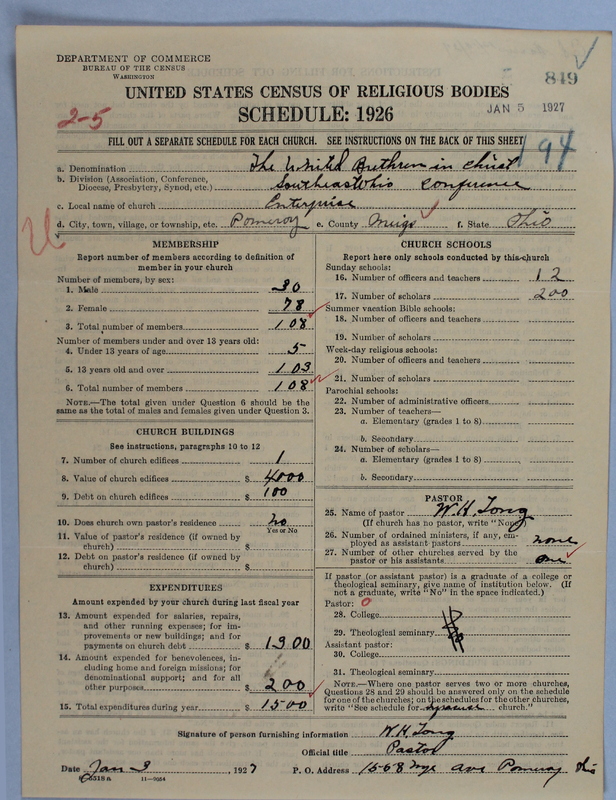 DEPARTMENT OF COMMERCE
BUREAU OF THE CENSUS
WASHINGTON
849
UNITED STATES CENSUS OF RELIGIOUS BODIES
SCHEDULE: 1926
JAN 5 1927
2-5
FILL OUT A SEPARATE SCHEDULE FOR EACH CHURCH. SEE INSTRUCTIONS ON THE BACK OF THIS SHEET
194
a. Denomination The United Brethren in Christ
b. Division (Association, Conference, Diocese, Presbytery, Synod, etc.) Southeast Ohio Conference
c. Local name of church Enterprise
d. City, town, village, or township, etc. Pomeroy e. County Meigs f. State Ohio
MEMBERSHIP
Report number of members according to definition of
member in your church
Number of members, by sex:
1. Male 30
2. Female 78
3. Total number of members 108
Number of members under and over 13 years old:
4. Under 13 years of age 5
5. 13 years old and over 103
6. Total number of members 108
NOTE.—The total given under Question 6 should be the
same as the total of males and females given under Question 3.
CHURCH BUILDINGS
See instructions, paragraphs 10 to 12
7. Number of church edifices 1
8. Value of church edifices $ 4000
9. Debt on church edifices $ 100
10. Does church own pastor's residence no
Yes or No
11. Value of pastor's residence (if owned by
church) $
12. Debt on pastor's residence (if owned by
church) $
EXPENDITURES
Amount expended by your church during last fiscal year
13. Amount expended for salaries, repairs,
and other running expenses; for im-
provements or new buildings; and for
payments on church debt $ 1300
14. Amount expended for benevolences, in-
cluding home and foreign missions; for
denominational support; and for all
other purposes $ 200
15. Total expenditures during year $ 1500
CHURCH SCHOOLS
Report here only schools conducted by this church
Sunday schools:
16. Number of officers and teachers 12
17. Number of scholars 200
Summer vacation Bible schools:
18. Number of officers and teachers
19. Number of scholars
Week-day religious schools:
20. Number of officers and teachers
21. Number of scholars
Parochial schools:
22. Number of administrative officers
23. Number of teachers—
a. Elementary (grades 1 to 8)
b. Secondary
24. Number of scholars—
a. Elementary (grades 1 to 8)
b. Secondary
PASTOR
25. Name of pastor W. H. Long
(If church has no pastor, write "None")
26. Number of ordained ministers, if any, em-
ployed as assistant pastors none
27. Number of other churches served by the
pastor or his assistants one
If pastor (or assistant pastor) is a graduate of a college or
theological seminary, give name of institution below. (If
not a graduate, write "No" in the space indicated.)
Pastor: 0
28. College
29. Theological seminary
Assistant pastor:
30. College
31. Theological seminary
NOTE.—Where one pastor serves two or more churches,
Questions 28 and 29 should be answered only on the schedule
for one of the churches; on the schedules for the other churches,
write "See schedule for Syracuse church."
Signature of person furnishing information W. H. Long
Official title Pastor
Date Jan 3, 1927 P. O. Address 1568 Nye Ave Pomeroy Ohio
11-9054